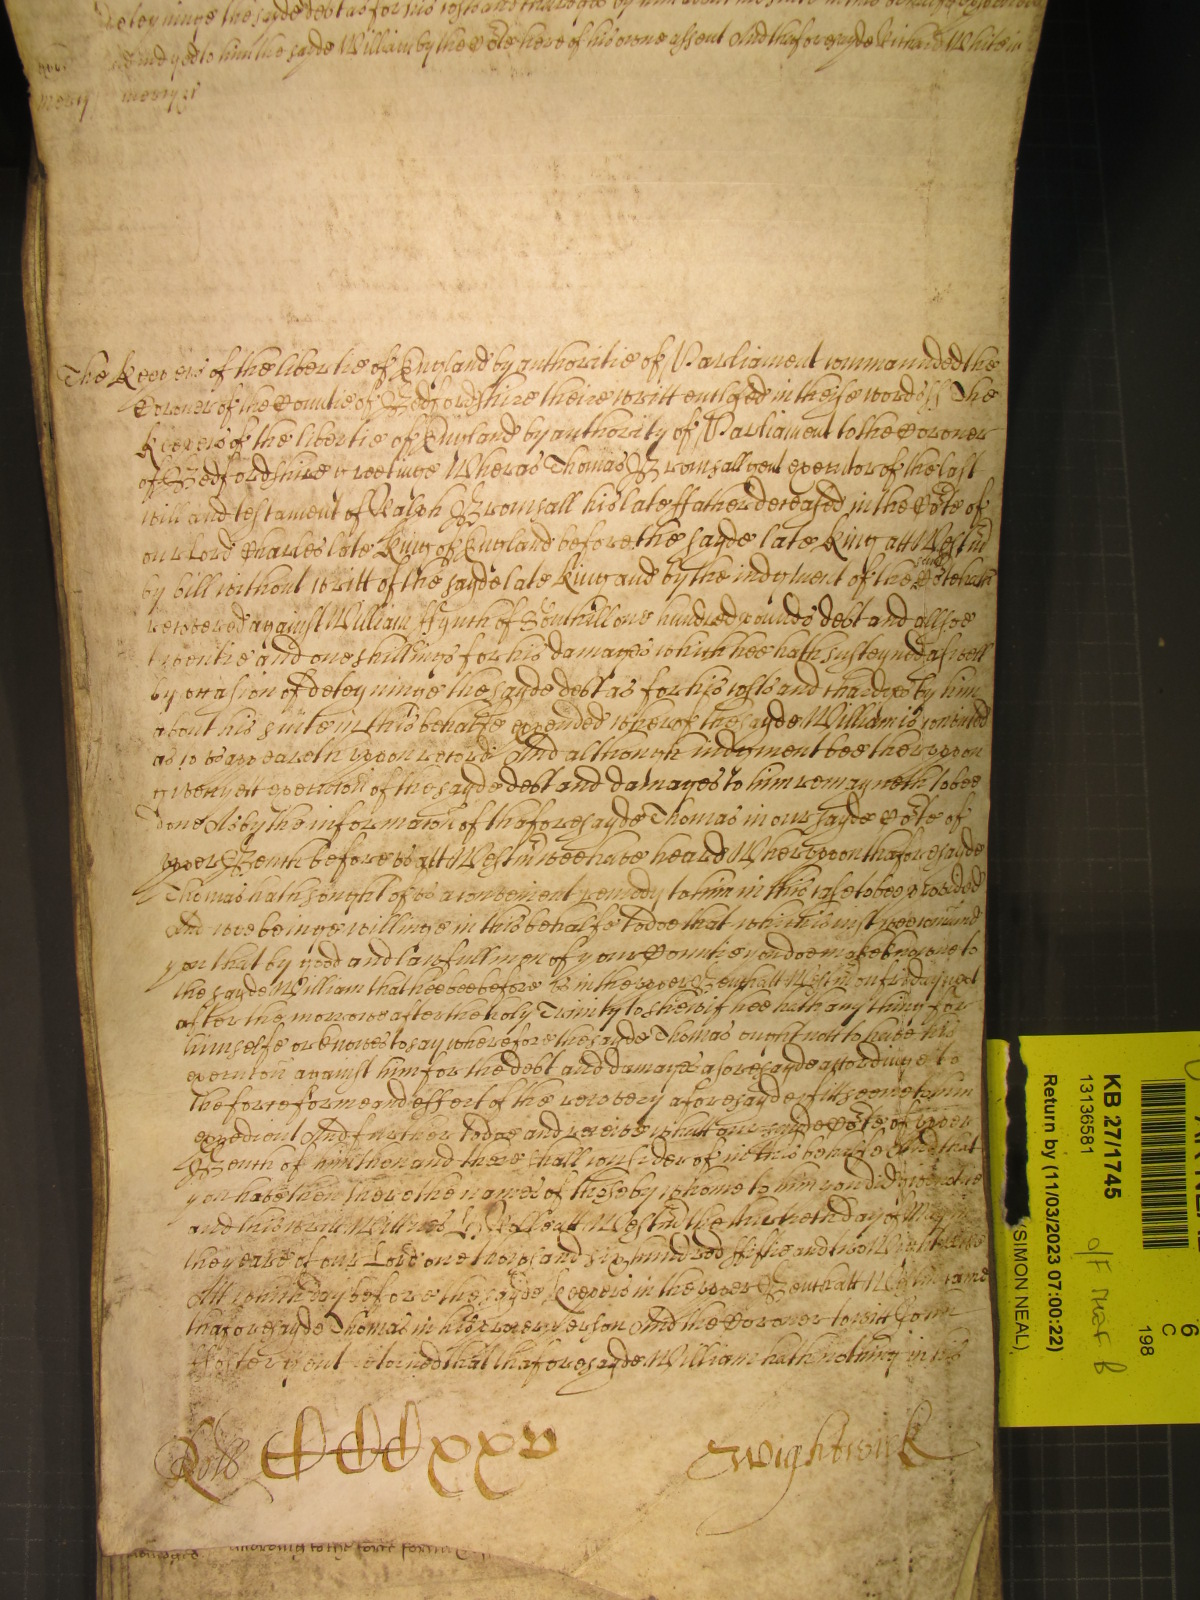 deteyninge the sayde debt as for his costs and
to him the sayde William by the Cote here of his owne assent And thaforesayde Richard
mercy mercy &c
The Keepers of the libertie of England by authoritie of Parliament commaunded the
Coroner of the Countie of Bedfordshire theire writt enclosed in theise words ss The
Keepers of the libertie of England by authority of Parliament to the Coroner
of Bedfordshire greetinge Wheras Thomas Bromsall gent executor of the last
will and testament of Ralph Bromsall his late ffather deceased in the Cote of
our Lord Charles late King of England before the sayde late King att Westm
by bill without writt of the sayde late King and by the iudgment of the same Cote hath
recovered against William ffynch of Southill one hundred pounds debt and allsoe
twentie and one shillings for his damages which hee hath susteyned aswell
by occasion of deteyninge the sayde debt as for his costs and chardges by him
about his suite in this behalfe expended wherof the sayde William is convicted
as to us appeareth uppon record And although iudgment bee theruppon
given yett execucion of the sayde debt and damages to him remayneth to bee
done As by the informacon of thaforesayde Thomas in our sayde Cote of
upper Bench before us att Westm wee have heard Wheruppon thaforesayde
Thomas hath sought of us a convenient remedy to him in this case to bee provided
And wee beinge willinge in this behalfe to doe that which is iust wee command
you that by good and lawfull men of your Countie you doe make knowne to
the sayde William that hee bee before us in the upper Bench att Westm on friday next
after the morrowe after the holy Trinity to shew if hee hath any thing for
himselfe or knowes to say wherefore the sayde Thomas ought not to have his
execucon against him for the debt and damages aforesayde accordinge to
the force forme and effect of the recovery aforesayde if itt seeme to him
expedient And further to doe and receive what our sayde Cote of upper
Bench of him then and there shall consider of in this behalfe And that
you have then there the names of those by whome to him you did give notice
and this writt Wittnes H Rolle att Westm the day of
the yeare of our Lord one thousand six hundred fiftie and two Wightwicke
Att which day before the sayde Keepers in the upper Bench att Westm came
thaforesayde Thomas in his proper person And the Coroner to witt
ffoster gent retorned that thaforesayde William hath nothing in his
Rolls CCCxxv
Wightwick
KB 27/1745
13136581
Return by (11/03/2023 07:00:22)
(SIMON NEAL)
6
C
198